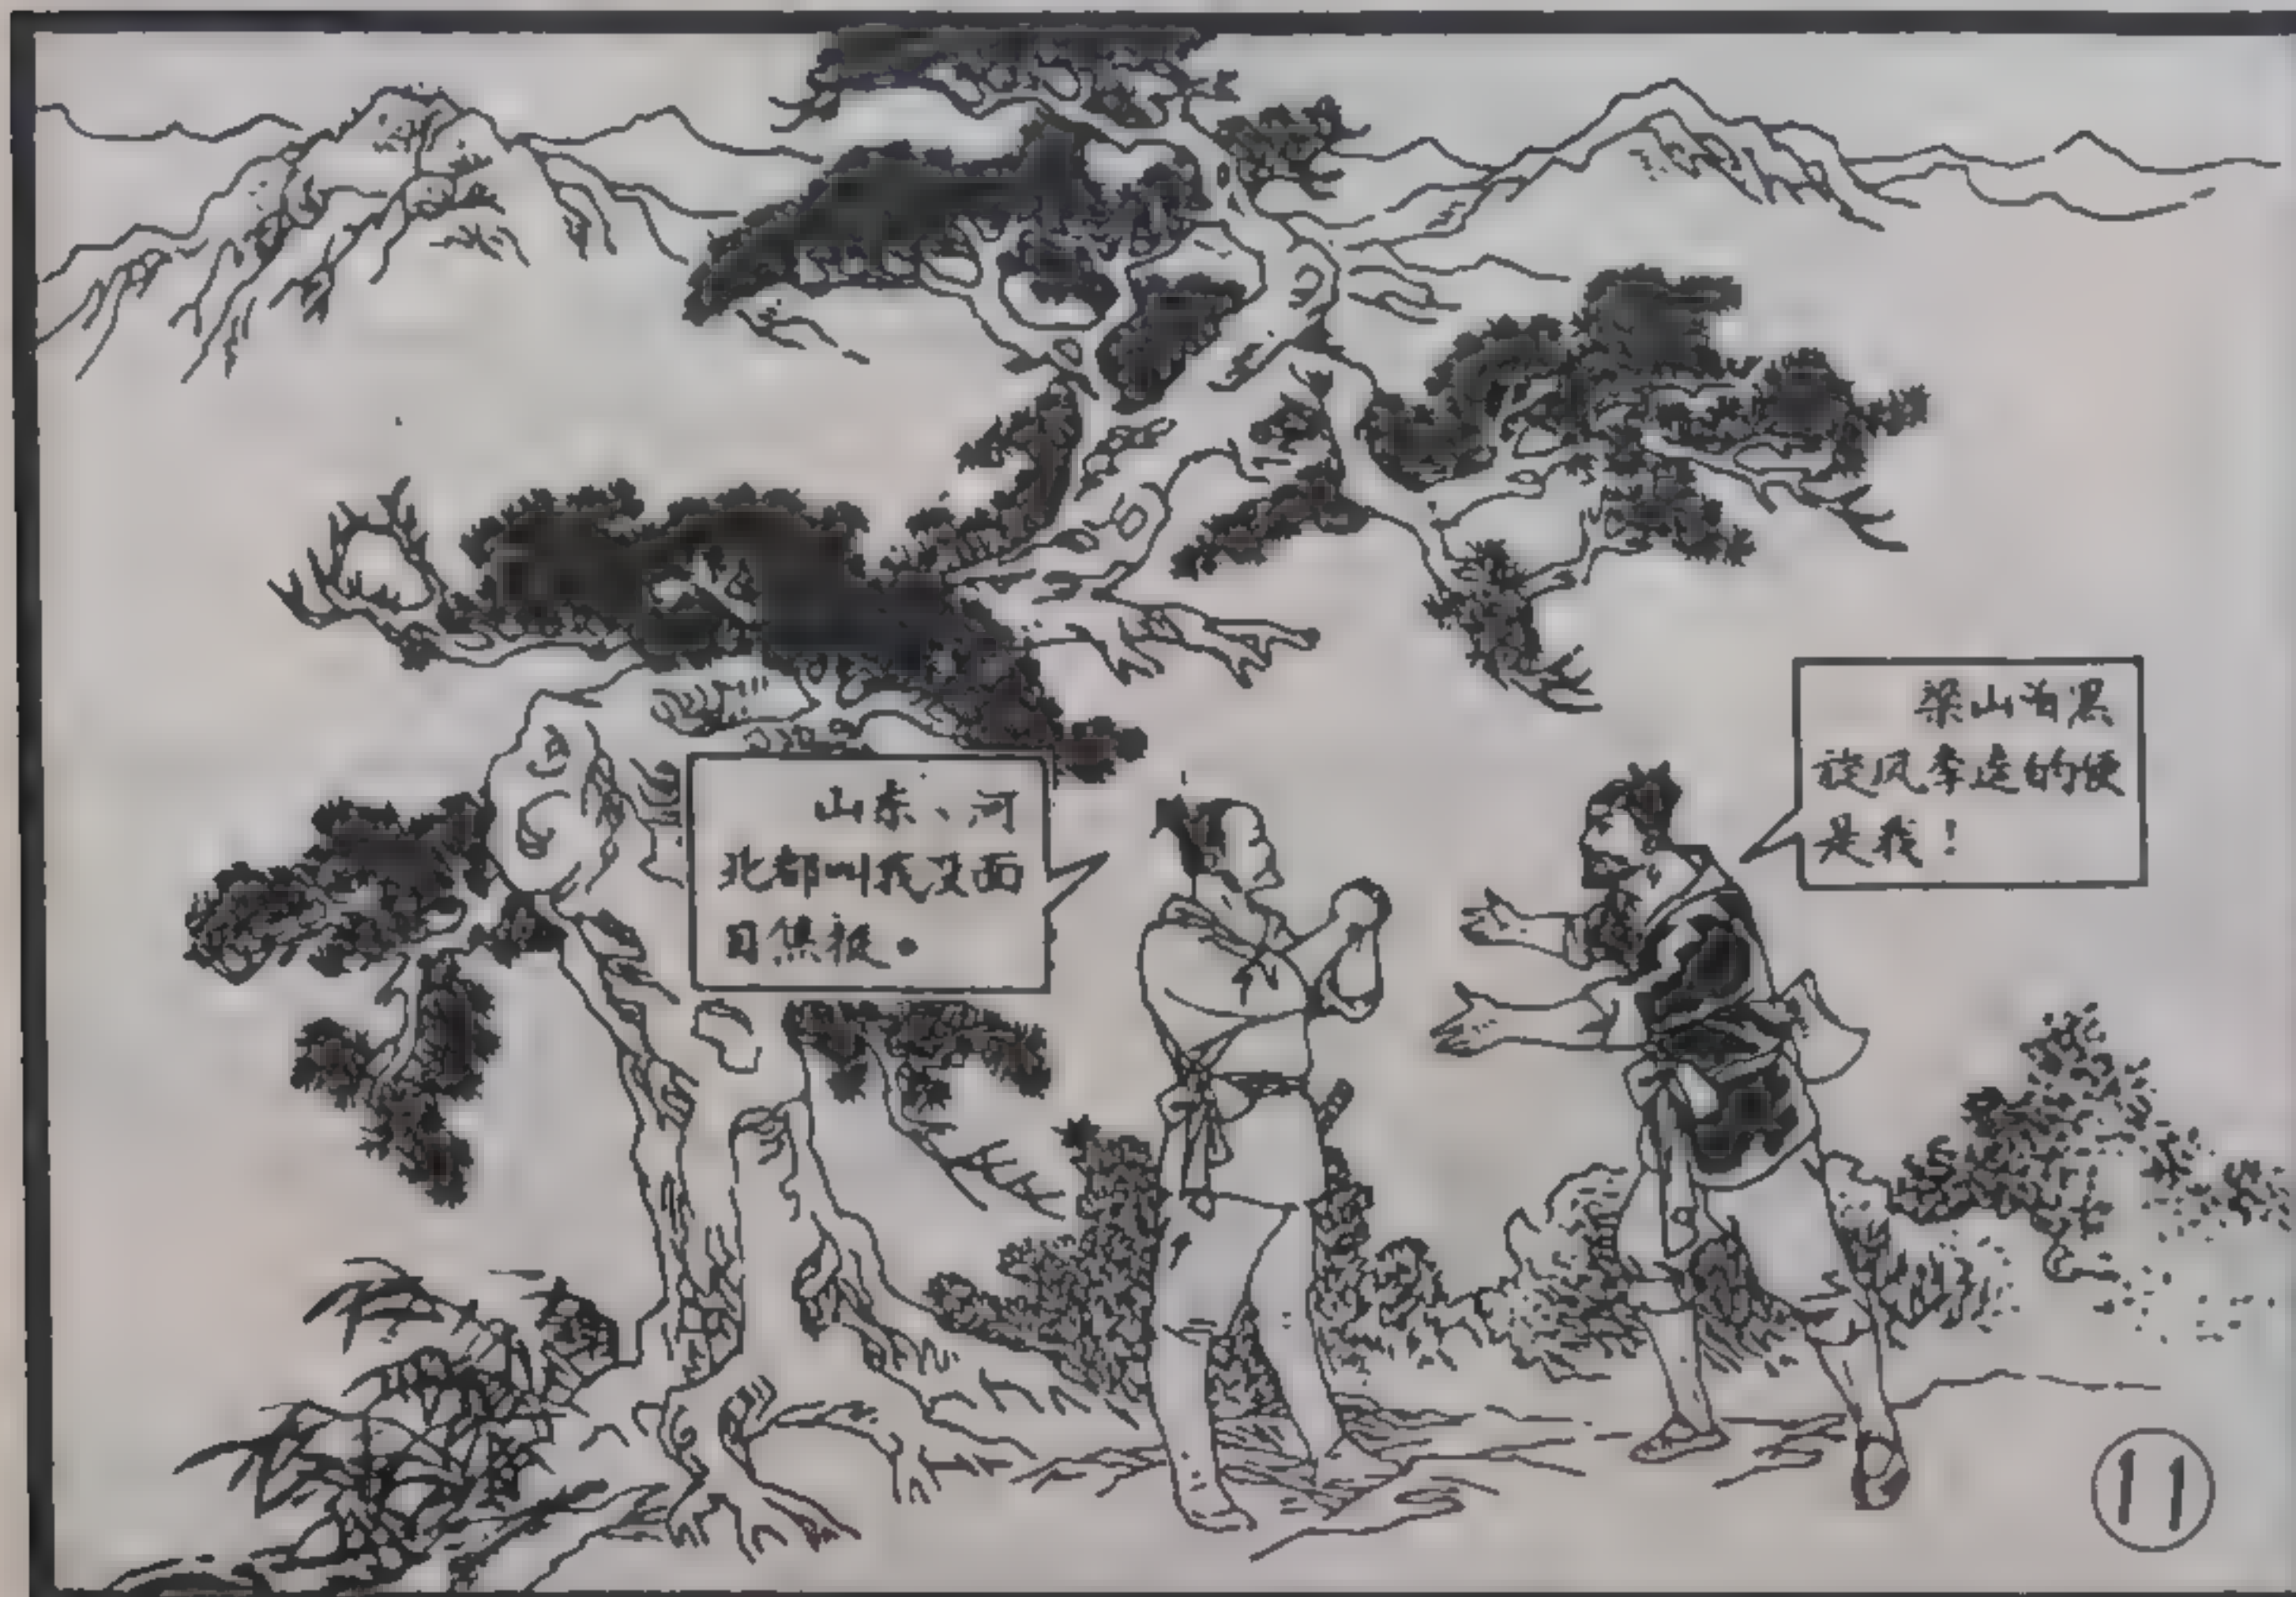 山东、河
北都叫我没面
目焦挺。
梁山泊黑
旋风李逵的便
是我！
11